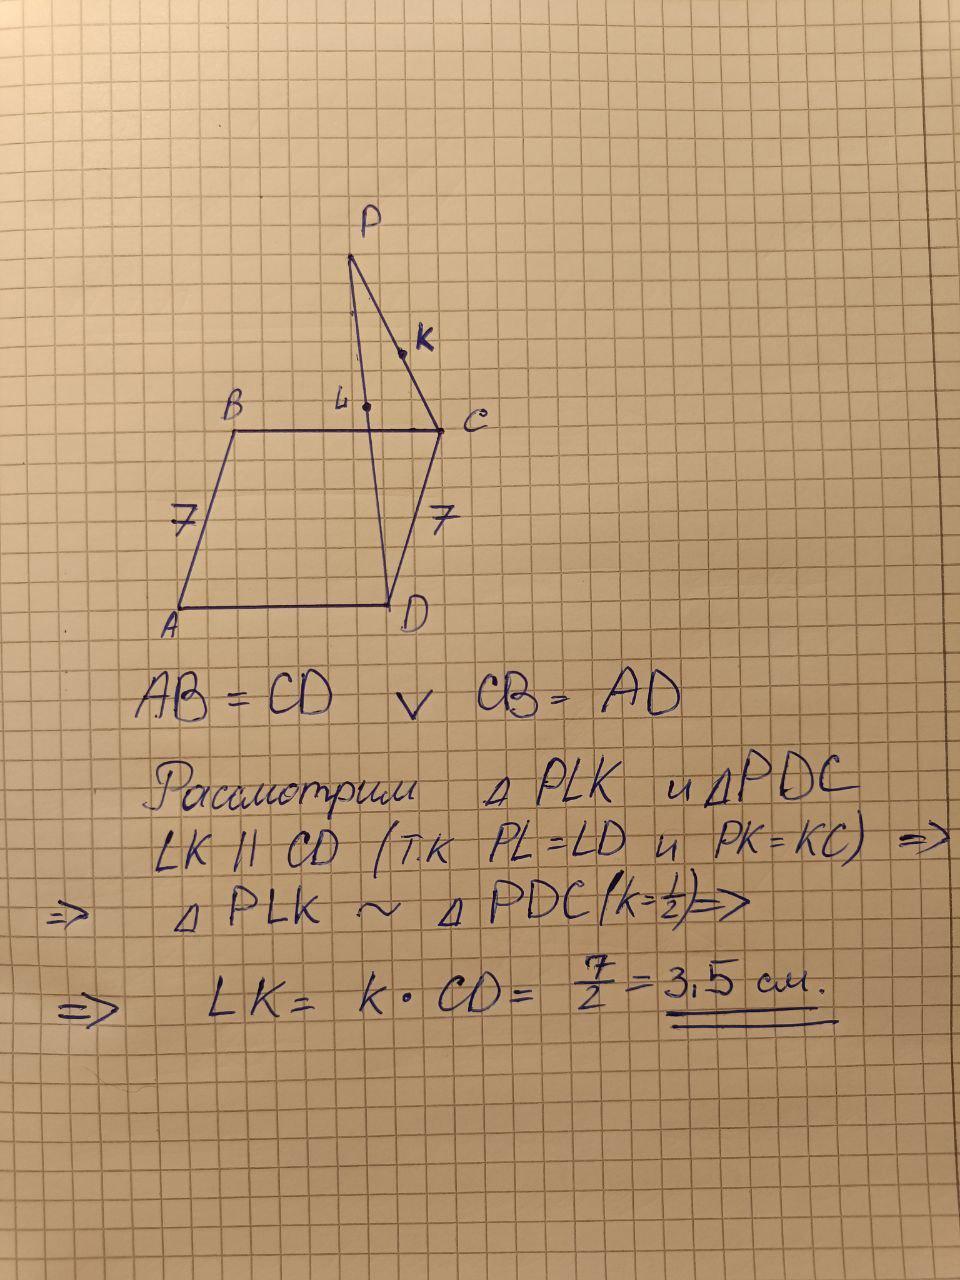 P
K
B
L
C
7
7
A
D
AB = CD v CB = AD
Рассмотрим Δ PLK и Δ PDC
LK || CD (т.к PL = LD и PK = KC) =>
=> Δ PLK ~ Δ PDC (k = 1/2) =>
=> LK = k · CD = 7/2 = 3,5 см.